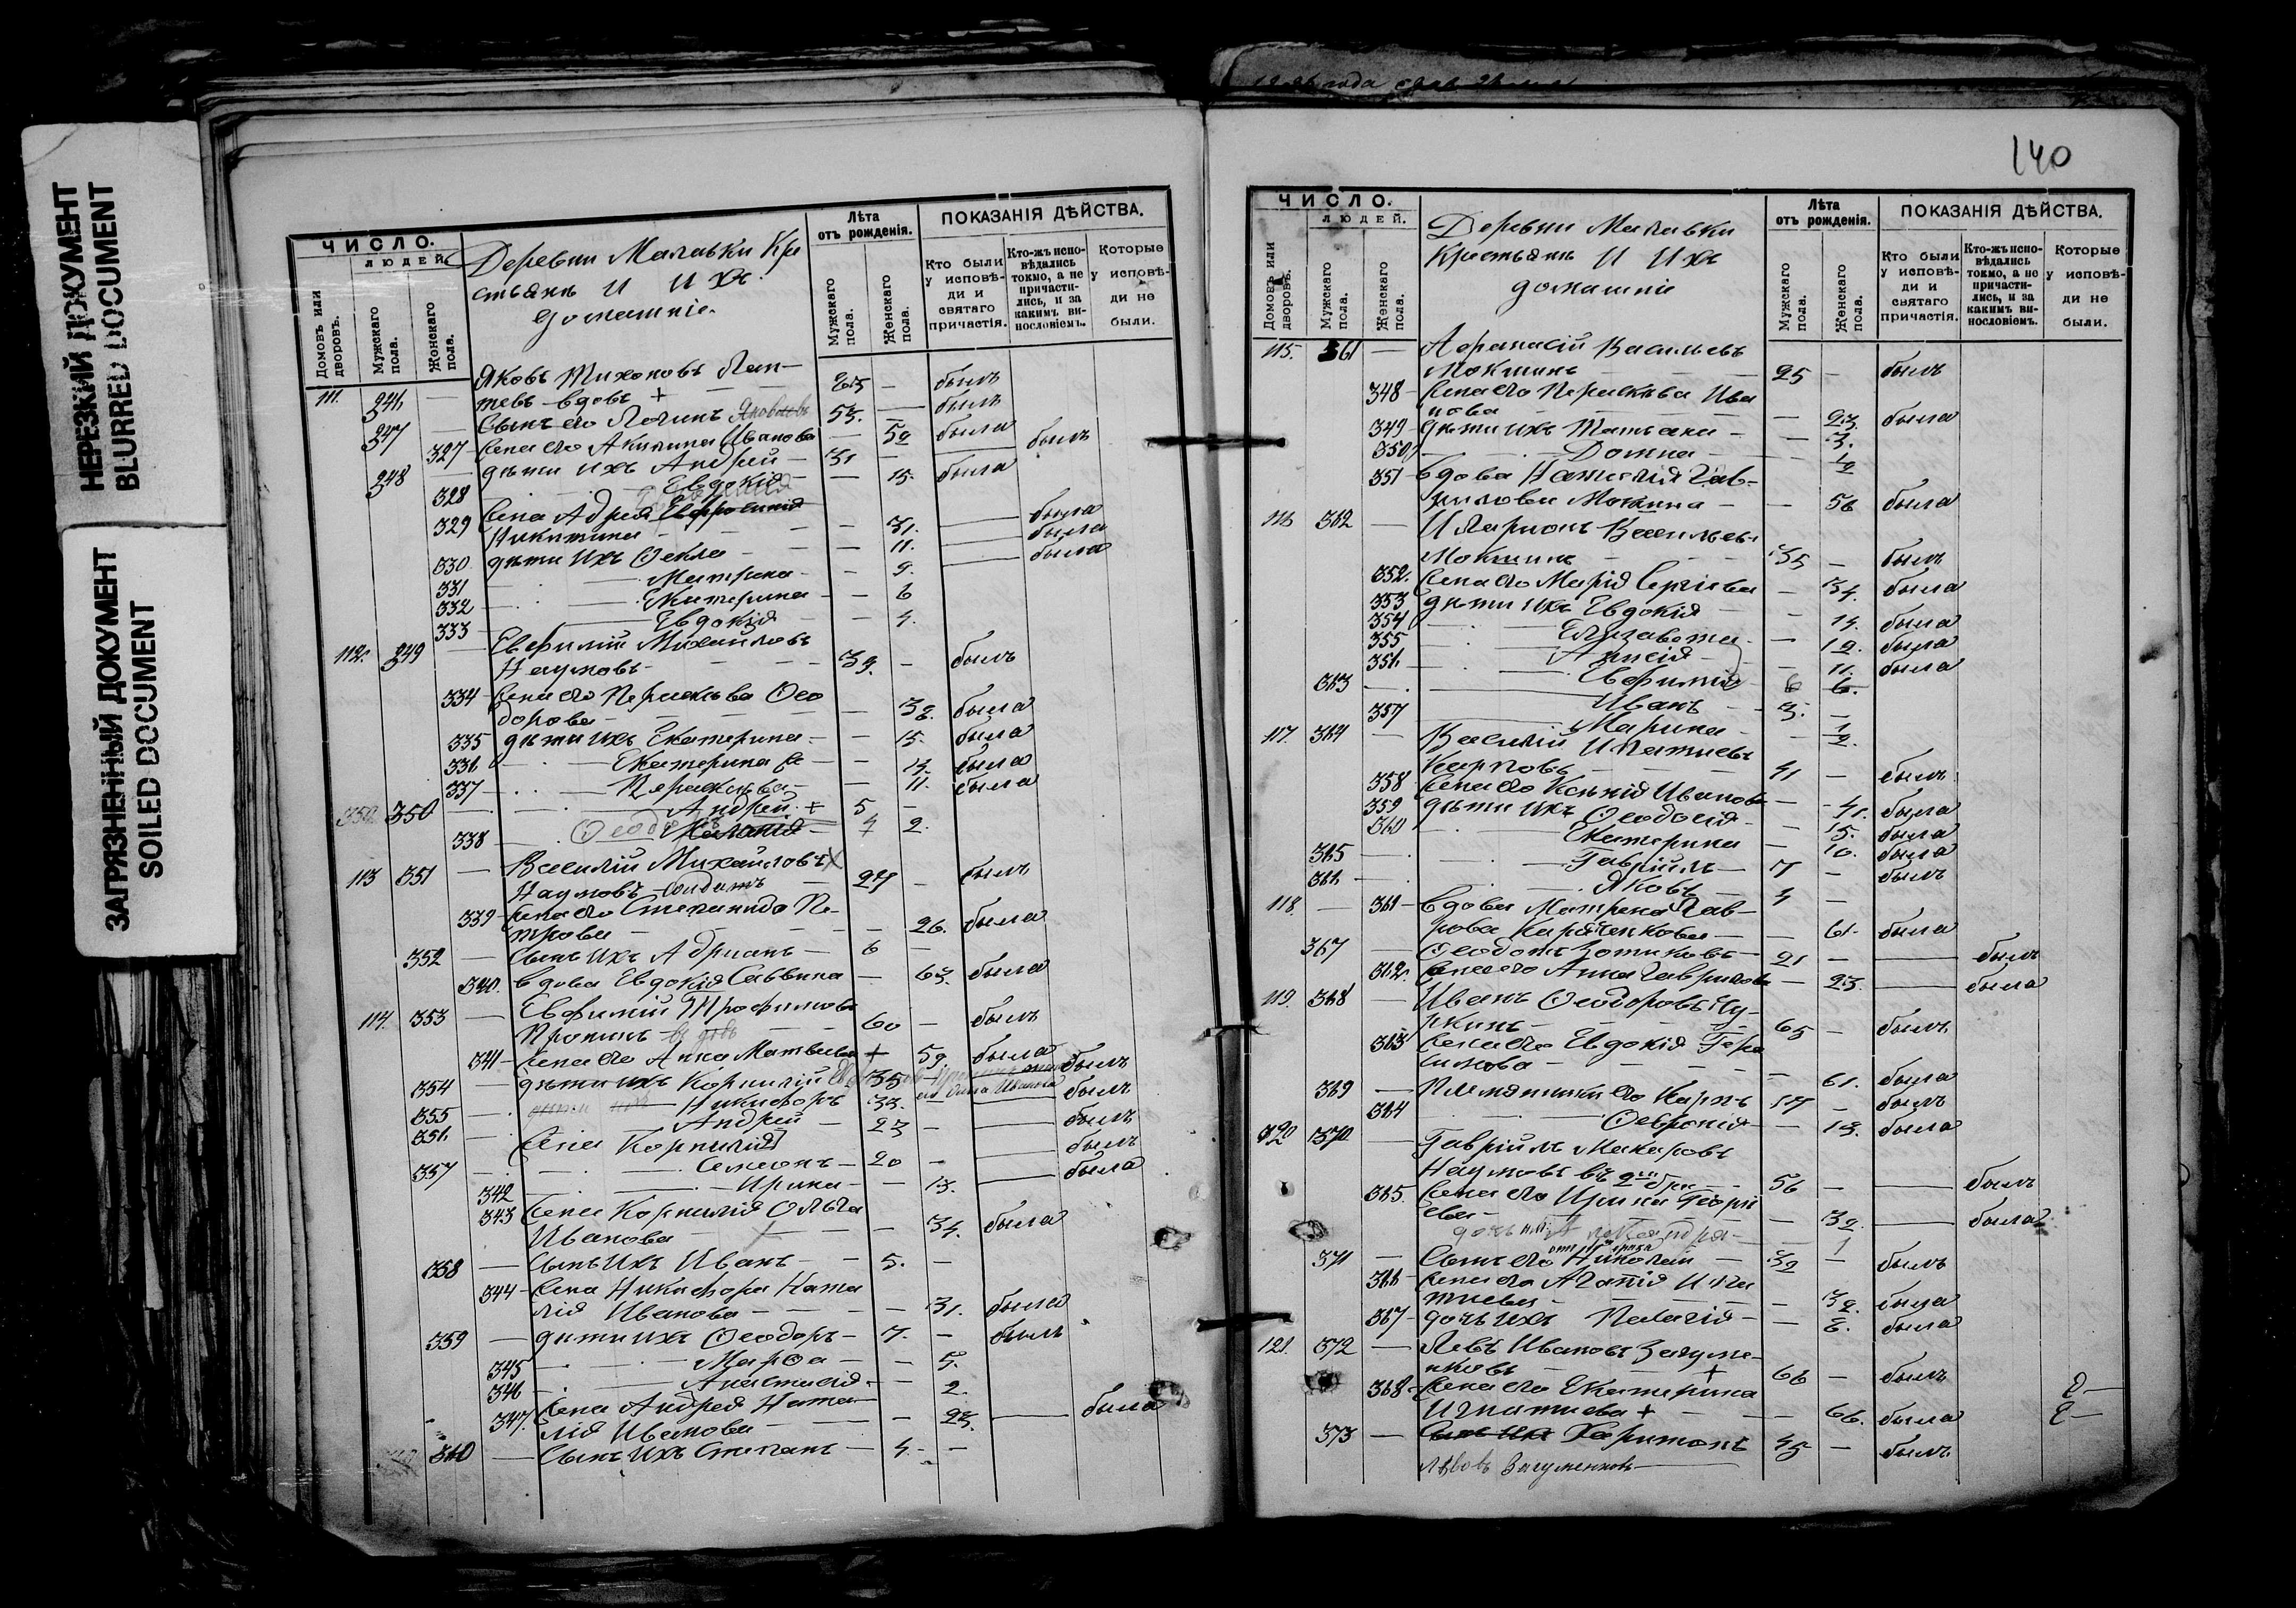 НЕРЕЗКИЙ ДОКУМЕНТ
BLURRED DOCUMENT
ЗАГРЯЗНЕННЫЙ ДОКУМЕНТ
SOILED DOCUMENT
ЧИСЛО.
ЛЮДЕЙ
Домовъ или дворовъ.
Мужскаго пола.
Женскаго пола.
Деревни Малавки Кре
стьяне и ихъ
домашніе.
Лѣта
отъ рожденія.
Мужскаго пола.
Женскаго пола.
ПОКАЗАНІЯ ДѢЙСТВА.
Кто были у исповѣди и святаго причастія.
Кто-жъ исповѣдались токмо, а не причастились, и за какимъ винословіемъ.
Которые у исповѣди не были.
111. 346 — Яковъ Тихоновъ
вдовъ + — былъ
347 — Сынъ его Логинъ 53. — былъ
327 Жена его Акилина Иванова — 52 была
348 — дѣти ихъ Андрей — 31 — былъ
328 Евдокія — 15. была
329 Жена Адрея
Никитина — 31. была
330 дѣти ихъ Ѳекла — 11. была
331 Матрена — 9. была
332 Екатерина — 6
333 Евдокія — 4.
112. 349 — Евфимій Михайловъ
Наумовъ — 39. — былъ
334 Жена его Параскѣва Ѳео
дорова — 38. была
335 дѣти ихъ Екатерина — 15. была
336 Екатерина — 14. была
337 Параскѣва — 11. была
350 350 — Андрей + 5
338 2.
113 351 — Василій Михайловъ
Наумовъ — солдатъ — 27 — былъ
339 Жена его Степанида Пе
трова — 26. была
352 — Сынъ ихъ Адріанъ — 6 —
340. вдова Евдокія Саввина — 63. была
114. 353 — Евфимій Трофимовъ
Пронинъ — 60 — былъ
341 Жена его Анна Матвѣева + 59 была
354 — дѣти ихъ Корнилій 35 былъ
355 — Никифоръ 33. — былъ
356. — Андрей — 23 — былъ
Жена Корнилія
357 — Симеонъ — 20 — былъ
342 Ирина — 13. была
343 Жена Корнилія Ольга
Иванова — 34. была
358 — Сынъ ихъ Иванъ — 5. —
344 Жена Никифора Ната
лія Иванова — 31. была
359 — дѣти ихъ Ѳеодоръ — 7. — былъ
345 Марѳа — 5.
346 Анастасія — 2.
347. Жена Андрея Ната
лія Иванова — 23. была
360 — Сынъ ихъ Степанъ — 4. —
140
ЧИСЛО.
ЛЮДЕЙ.
Домовъ или дворовъ.
Мужскаго пола.
Женскаго пола.
Деревни Малавки
Крестьяне и ихъ
домашніе
Лѣта
отъ рожденія.
Мужскаго пола.
Женскаго пола.
ПОКАЗАНІЯ ДѢЙСТВА.
Кто были у исповѣди и святаго причастія.
Кто-жъ исповѣдались токмо, а не причастились, и за какимъ винословіемъ.
Которые у исповѣди не были.
115. 361 — Аѳанасій Васильевъ
Мокшинъ 25 — былъ
348 Жена его Параскѣва Ива
нова — 23. была
349 дѣти ихъ Татьяна — 3.
350 Домна — 1/2
351 вдова Наталія Гав-
рилова Мокшина — 56 была
116 362 — Иларіонъ Васильевъ
Мокшинъ 35 — былъ
352. Жена его Марія Сергіева — 34. была
353 дѣти ихъ Евдокія — 14. была
354 Елизавета — 12. была
355 Анисія — 11. была
356. Евфимія 6 6.
363 — Иванъ — 3. —
357 Марина — 1/2.
117. 364 — Василій Игнатіевъ
Карповъ — 41 — былъ
358 Жена его Ксенія Иванова — 41. была
359 дѣти ихъ Ѳеодосія — 15. была
360 Екатерина — 10. была
365 — Гавріилъ — 7 — былъ
366. — Яковъ — 4 —
118. — 361 вдова Матрена
— 61. была
367 — Ѳеодотъ Зотиковъ — 21 — былъ
362. Жена его Анна Гаврилова — 23. была
119. 368 — Иванъ Ѳеодоровъ Чу-
ркинъ 65 — былъ
363 Жена его Евдокія Гера
симова — 61. была
369 — Племянники его Карпъ 17 — былъ
364 Ѳевронія — 13. была
120 370 — Гавріилъ Макаровъ
Наумовъ въ 2мъ бра— 56 — былъ
365. Жена его Ирина Георгі
ева — 32. была
дочь Александра — 1
371 — Сынъ его Николай — 32 — былъ
366 Жена его Агапія Игна
тіева — 32. была
367 дочь ихъ Пелагія — 8. была
121. 372 — Левъ Ивановъ Загуме-
нновъ + 66 — былъ
368 Жена его Екатерина
Игнатіева + — 66. была
373 — Сынъ ихъ Харитонъ 45 — былъ
Львовъ Загуменновъ